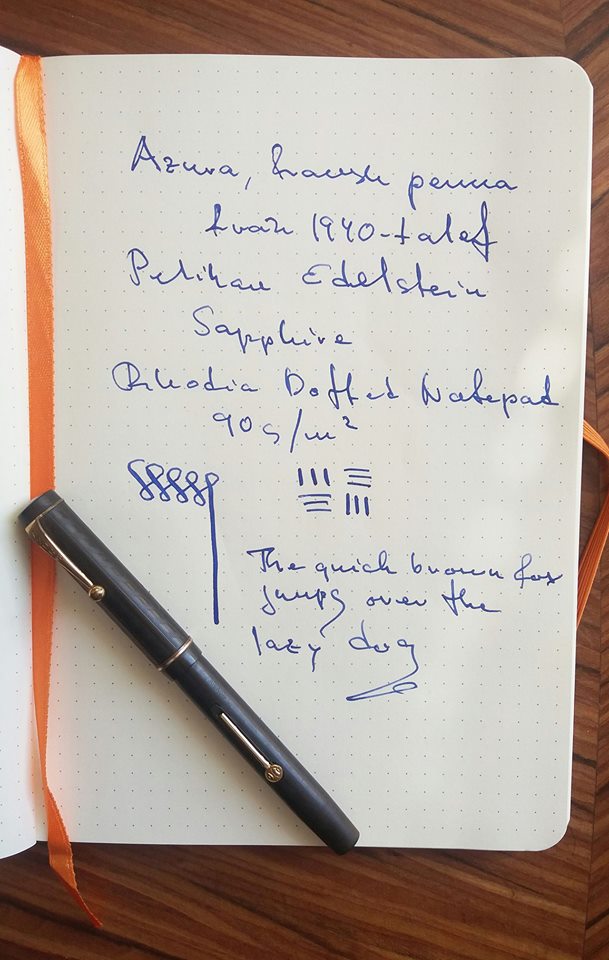 Azura, fransk penna
från 1940-talet
Pelikan Edelstein
Sapphire
Rhodia Dotted Notepad
90g/m²
The quick brown fox
jumps over the
lazy dog